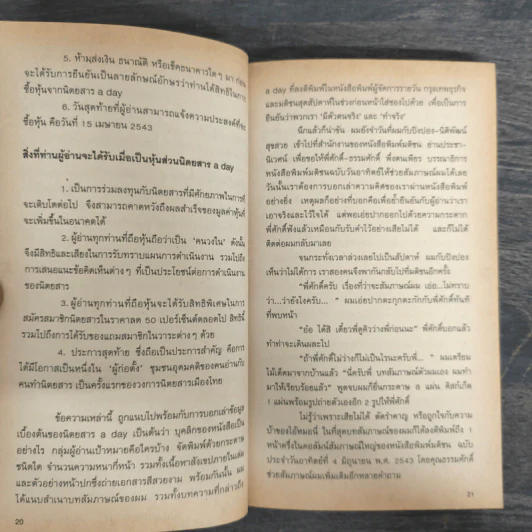 5. ห้ามส่งเงิน ธนาณัติ หรือเช็คธนาคารใดๆ มา ก่อน
จะได้รับการยืนยันเป็นลายลักษณ์อักษรว่าท่านได้สิทธิในการ
ซื้อหุ้นจากนิตยสาร a day
6. วันสุดท้ายที่ผู้อ่านสามารถแจ้งความประสงค์ที่จะ
ซื้อหุ้น คือวันที่ 15 เมษายน 2543
สิ่งที่ท่านผู้อ่านจะได้รับเมื่อเป็นหุ้นส่วนนิตยสาร a day
1. เป็นการร่วมลงทุนกับนิตยสารที่มีศักยภาพในการที่
จะเติบโตต่อไป จึงสามารถคาดหวังถึงผลสำเร็จของมูลค่าหุ้นที่
จะเพิ่มขึ้นในอนาคตได้
2. ผู้อ่านทุกท่านที่ถือหุ้นถือว่าเป็น 'คนวงใน' ดังนั้น
จึงมีสิทธิและเสียงในการรับทราบแผนการดำเนินงาน รวมไปถึง
การเสนอแนะข้อคิดเห็นต่างๆ ที่เป็นประโยชน์ต่อการดำเนินงาน
ของนิตยสาร
3. ผู้อ่านทุกท่านที่ถือหุ้นจะได้รับสิทธิพิเศษในการ
สมัครสมาชิกนิตยสารในราคาลด 50 เปอร์เซ็นต์ตลอดไป สิทธินี้
รวมไปถึงการได้รับของแถมสมาชิกในวาระต่างๆ ด้วย
4. ประการสุดท้าย ซึ่งถือเป็นประการสำคัญ คือการ
ได้มีโอกาสเป็นหนึ่งใน 'ผู้ก่อตั้ง' ชุมชนอุดมคติของคนอ่านกับ
คนทำนิตยสาร เป็นครั้งแรกของวงการนิตยสารเมืองไทย
ข้อความเหล่านี้ ถูกแนบไปพร้อมกับการบอกเล่าข้อมูล
เบื้องต้นของนิตยสาร a day เป็นต้นว่า บุคลิกของหนังสือเป็น
อย่างไร กลุ่มผู้อ่านเป้าหมายคือใครบ้าง จัดพิมพ์ด้วยกระดาษ
ชนิดใด จำนวนความหนากี่หน้า รวมทั้งเนื้อหาสังเขปภายในเล่ม
และตัวอย่างหน้าปกซึ่งถ่ายเอกสารสีสวยงาม พร้อมกันนั้น ผม
ได้แนบสำเนาบทสัมภาษณ์ของผม รวมทั้งบทความที่กล่าวถึง
20
a day ที่ลงตีพิมพ์ในหนังสือพิมพ์ผู้จัดการรายวัน กรุงเทพธุรกิจ
และมติชนสุดสัปดาห์ในช่วงก่อนหน้าใส่ซองไปด้วย เพื่อเป็นการ
ยืนยันว่าพวกเรา 'มีตัวตนจริง' และ 'ทำจริง'
นึกแล้วก็น่าขัน ผมยังจำวันที่ผมกับปิงปอง-นิติพัฒน์
สุขสวย เข้าไปที่สำนักงานของหนังสือพิมพ์มติชน ย่านประชา-
นิเวศน์ เพื่อขอให้พี่ศักดิ์-ธรรมศักดิ์ พึ่งตนเพียร บรรณาธิการ
หนังสือพิมพ์มติชนฉบับวันอาทิตย์ให้ช่วยสัมภาษณ์ผมได้เลย
วันนั้นเราต้องการบอกเล่าความคิดของเราผ่านหน้าหนังสือพิมพ์
อย่างยิ่ง เหตุผลก็อย่างที่บอกคือเพื่อย้ำยืนยันกับผู้อ่านว่าเรา
เอาจริงและไว้ใจได้ แต่พอเอ่ยปากออกไปด้วยความกระดาก
พี่ศักดิ์ฟังแล้วเหมือนกับรับคำไว้อย่างเสียไม่ได้ และก็ไม่ได้
ติดต่อผมกลับมาเลย
จนกระทั่งเวลาล่วงเลยไปเป็นสัปดาห์ ผมกับปิงปอง
เห็นว่าไม่ได้การ เราสองคนจึงพากันกลับไปที่มติชนอีกครั้ง
"พี่ศักดิ์ครับ เรื่องที่ว่าจะสัมภาษณ์ผม เอ่อ...ไม่ทราบ
ว่า...ว่ายังไงครับ... " ผมเอ่ยปากตะกุกตะกักกับพี่ศักดิ์ทันที
ที่พบหน้า
"อ๋อ ได้สิ เดี๋ยวพี่ดูคิวว่างพี่ก่อนนะ" พี่ศักดิ์บอกแล้ว
ทำท่าจะเดินผละไป
"ถ้าพี่ศักดิ์ไม่ว่างก็ไม่เป็นไรนะครับพี่... " ผมเตรียม
ไม้เด็ดมาจากบ้านแล้ว "นี่ครับพี่ บทสัมภาษณ์ตัวผมเอง ผมทำ
มาให้เรียบร้อยแล้ว" พูดจบผมก็ยื่นกระดาษ 8 แผ่น ดิสก์เก็ต
1 แผ่นพร้อมรูปถ่ายตัวเองอีก 2 รูปให้พี่ศักดิ์
ไม่รู้ว่าเพราะเสียไม่ได้ ตัดรำคาญ หรือถูกใจกับความ
บ้าของไอ้หมอนี่ ในที่สุดบทสัมภาษณ์ของผมก็ได้ลงตีพิมพ์ถึง 1
หน้าครึ่งในคอลัมน์สัมภาษณ์ใหญ่ของหนังสือพิมพ์มติชน ฉบับ
ประจำวันอาทิตย์ที่ 4 มิถุนายน พ.ศ. 2543 โดยคุณธรรมศักดิ์
ช่วยสัมภาษณ์ผมเพิ่มเติมอีกหลายคำถาม
21